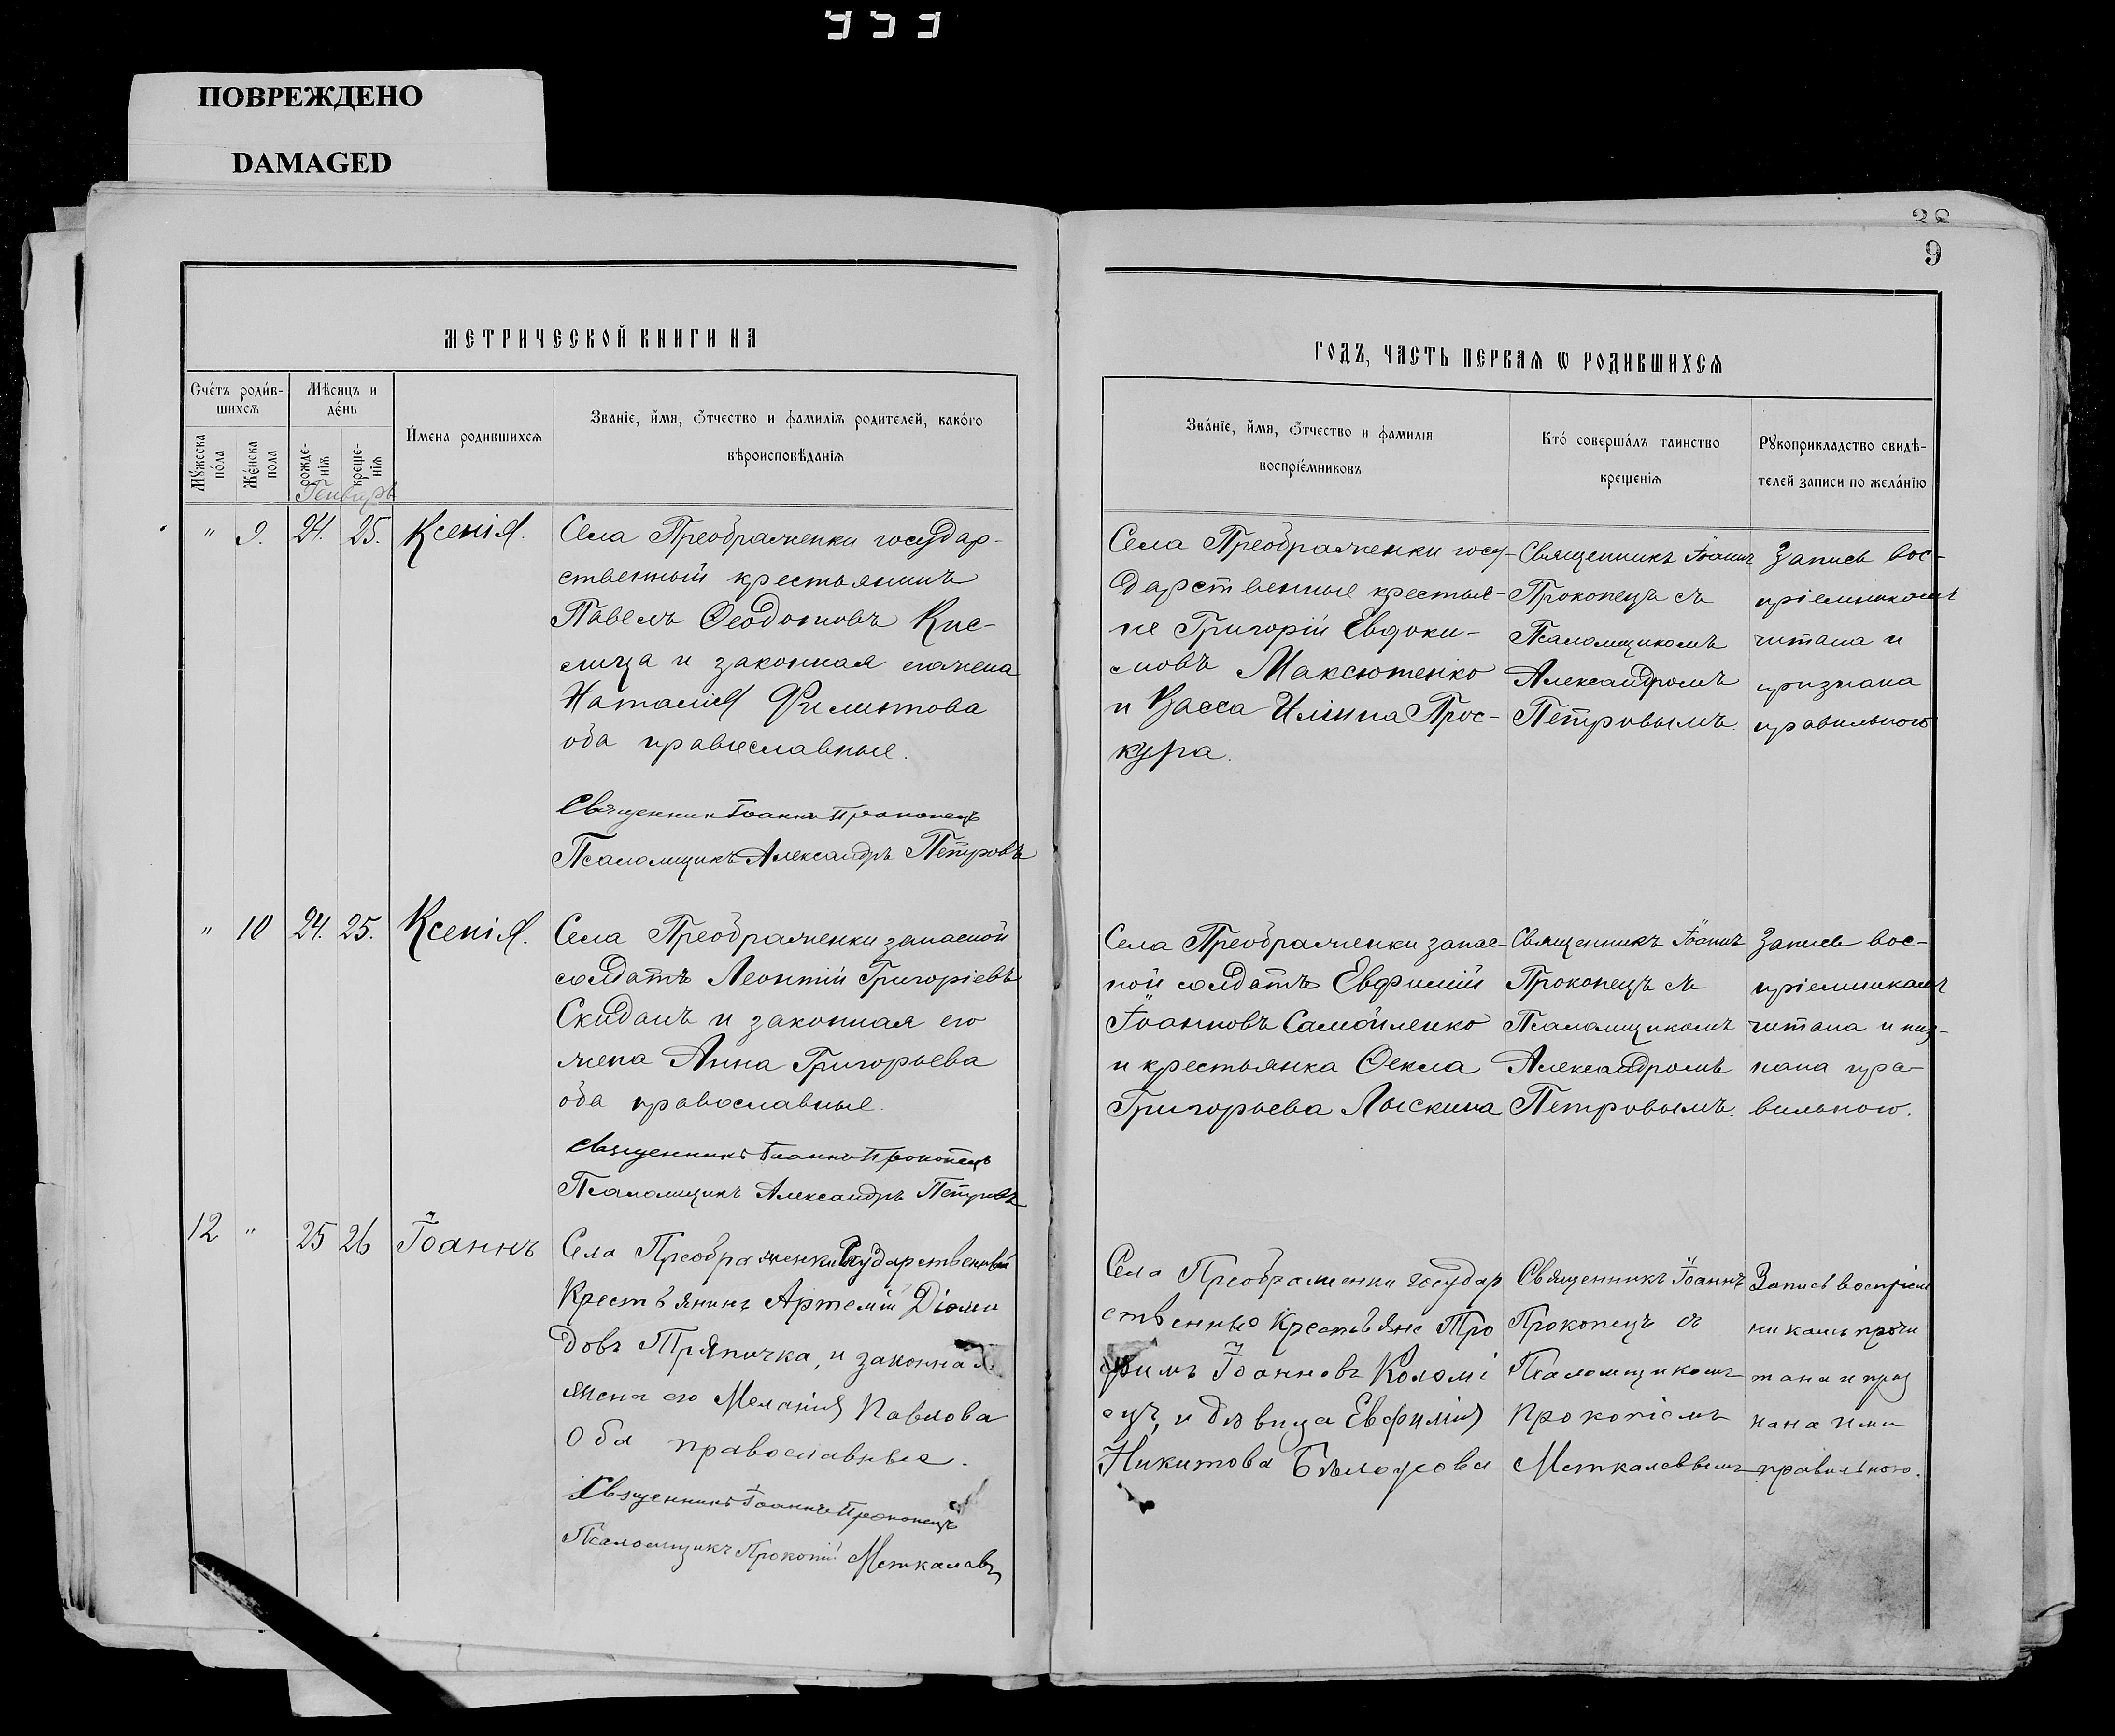 ПОВРЕЖДЕНО
DAMAGED
9
МЕТРИЧЕСКОЙ КНИГИ НА
ГОДЪ, ЧАСТЬ ПЕРВАѦ Ѡ РОДИВШИХСѦ
Сче́тъ роди́в-
шихсѧ
Мѣсяцъ и
де́нь
Мꙋ́жеска
по́ла
Же́нска
пола
рожде-
нїѧ
креще-
нїѧ
И́мена родившихсѧ
Званїе, и҆́мя, ѻ҆́тчество и фамилїѧ родителей, како́го
вѣроисповѣ́данїѧ
Зва́нїе, и҆́мя, ѻ҆́тчество и фамилїя
воспрїе́мниковъ
Кто́ соверша́лъ таинство
крещенїѧ
Рꙋкоприкладство свидѣ-
телей записи по жела́нїю
Генварь
" 9. 24. 25. Ксенія.
Села Преображенки государ-
ственный крестьянинъ
Павелъ Ѳеодотовъ Кис-
лица и законная его жена
Наталія Филиппова
оба православные.
Священникъ Іоаннъ Прокопецъ
Псаломщикъ Александръ Петровъ
Села Преображенки госу-
дарственные крестья-
не Григорій Евдоки-
мовъ Максютенко
и Васса Иліина Прос-
кура.
Священникъ Іоаннъ
Прокопецъ съ
Псаломщикомъ
Александромъ
Петровымъ.
Запись вос-
пріемникомъ
читана и
признана
правильною
" 10 24. 25. Ксенія.
Села Преображенки запасной
солдатъ Леонтій Григоріевъ
Скиданъ и законная его
жена Анна Григорьева
оба православные.
Священникъ Іоаннъ Прокопецъ
Псаломщикъ Александръ Петровъ
Села Преображенки запас-
ной солдатъ Евфимій
Іоанновъ Самойленко
и крестьянка Ѳекла
Григорьева Лыскина
Священникъ Іоаннъ
Прокопецъ съ
Псаломщикомъ
Александромъ
Петровымъ.
Запись вос-
пріемникамъ
читана и
нана пра-
вильною.
12 " 25 26 Іоаннъ
Села Преображенки Государственный
Крестьянинъ Артемій Діоми
довъ Тряпичка, и законная
жена его Меланія Павлова
Оба православные.
Священникъ Іоаннъ Прокопецъ
Псаломщикъ Прокопій Меткалавъ
Села Преображенки государ
ственные Крестьяне Тро
фимъ Іоанновъ Коломі
ецъ, и дѣвица Евфимія
Никитова Бѣлоусова
Священникъ Іоаннъ
Прокопецъ съ
Псаломщикомъ
Прокопіемъ
Меткалаввымъ
Запись воспріем
никамъ прочи
тана и приз
нана ими
правильною.